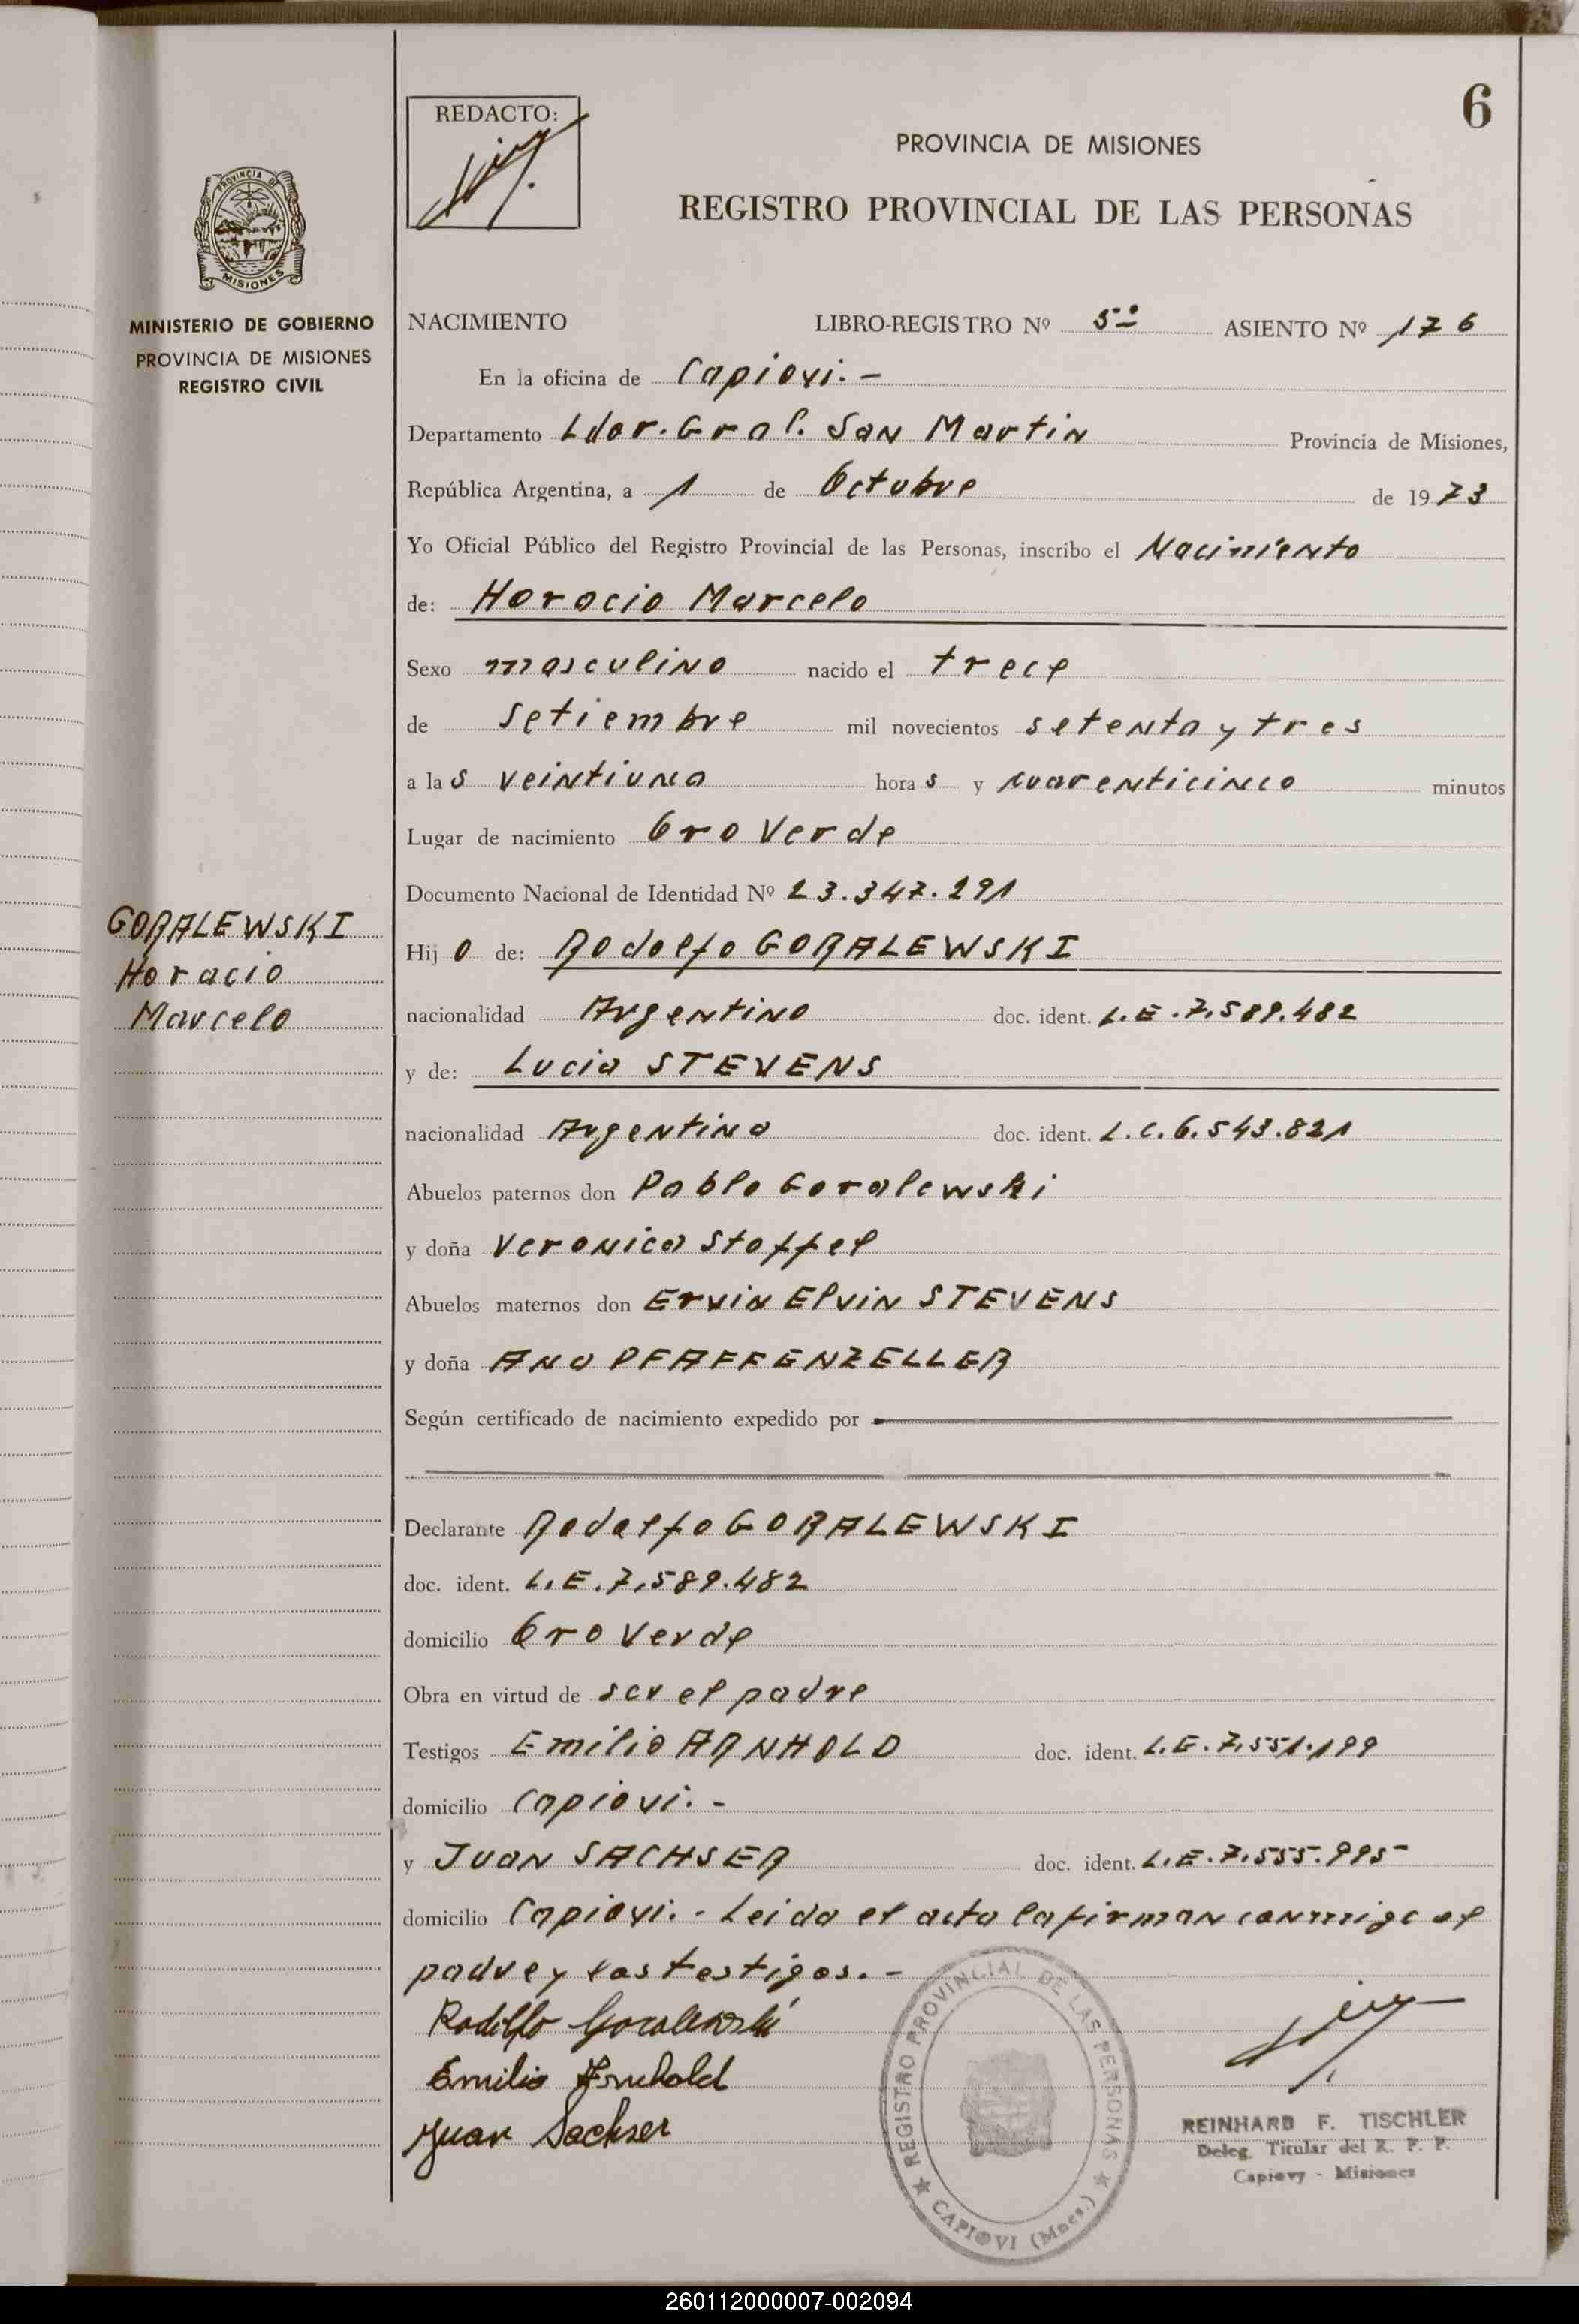 6
REDACTO:
PROVINCIA DE MISIONES
REGISTRO PROVINCIAL DE LAS PERSONAS
PROVINCIA DE
MISIONES
MINISTERIO DE GOBIERNO
PROVINCIA DE MISIONES
REGISTRO CIVIL
NACIMIENTO LIBRO-REGISTRO Nº 5º ASIENTO Nº 176
En la oficina de Capiovi.-
Departamento Ldor. Gral. San Martin Provincia de Misiones,
República Argentina, a 1 de Octubre de 1973
Yo Oficial Público del Registro Provincial de las Personas, inscribo el Nacimiento
de: Horacio Marcelo
Sexo masculino nacido el trece
de Setiembre mil novecientos setenta y tres
a las veintiuna horas y cuarenticinco minutos
Lugar de nacimiento Oro Verde
Documento Nacional de Identidad Nº 23.347.291
GORALEWSKI
Horacio
Marcelo
Hijo de: Rodolfo GORALEWSKI
nacionalidad Argentino doc. ident. L.E.7.589.482
y de: Lucia STEVENS
nacionalidad Argentina doc. ident. L.C.6.543.821
Abuelos paternos don Pablo Goralewski
y doña Veronica Stoffel
Abuelos maternos don Ervin Elvin STEVENS
y doña Ana PFAFFENZELLER
Según certificado de nacimiento expedido por
Declarante Rodolfo GORALEWSKI
doc. ident. L.E.7.589.482
domicilio Oro Verde
Obra en virtud de ser el padre
Testigos Emilio ARNHOLD doc. ident. L.E.7.551.199
domicilio Capiovi.-
y Juan SACHSER doc. ident. L.E.7.555.995
domicilio Capiovi.- Leida el acta la firman conmigo el
padre y los testigos.-
Rodolfo Goralewski
Emilio Arnhold
Juan Sachser
REGISTRO PROVINCIAL DE LAS PERSONAS
CAPIOVI (Mnes.)
REINHARD F. TISCHLER
Deleg. Titular del R. P. P.
Capiovy - Misiones
260112000007-002094